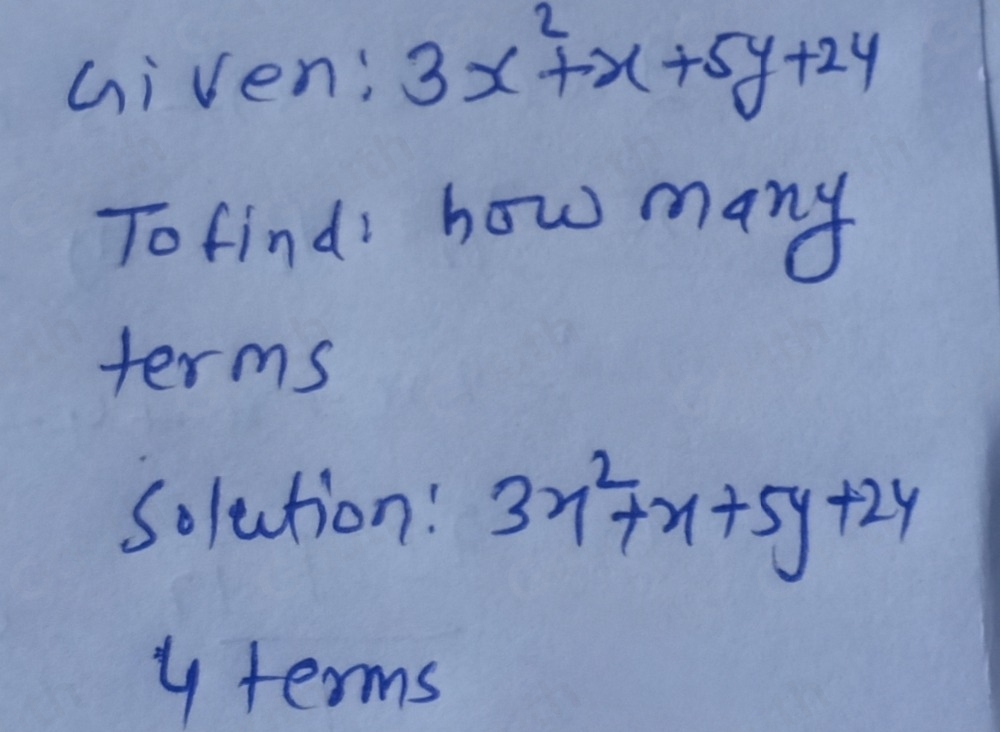 Given: 3x²+x+5y+24
To find: how many
terms
Solution: 3x²+x+5y+24
4 terms